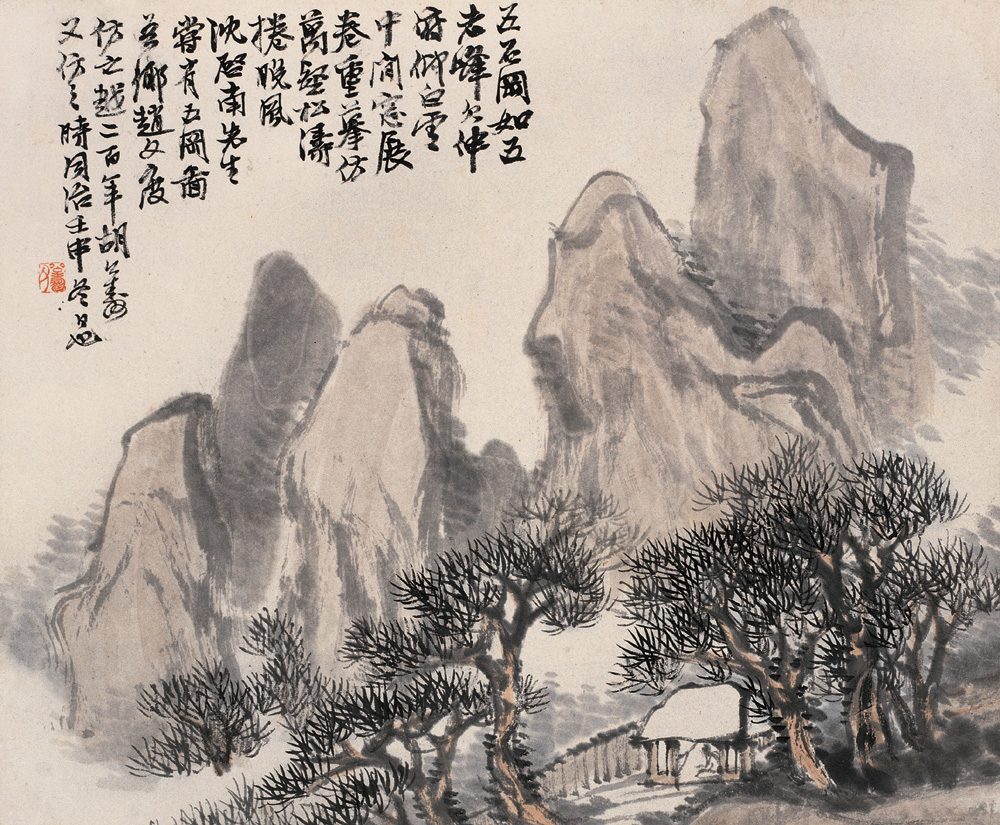 五石岡如五
老峰欠伸
俯仰白雲
中間窓展
卷重摹仿
萬壑松濤
捲晚風
沈啓南先生
嘗有五岡圖
吾鄉趙文度
仿之越二百年胡公壽
又仿之時同治壬申冬日也